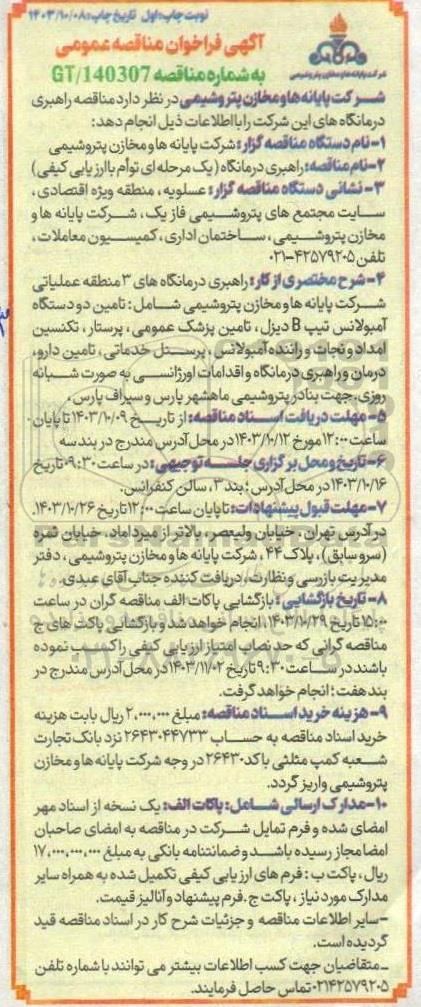 نوبت چاپ: اول تاریخ چاپ: ۱۴۰۳/۱۰/۰۸
آگهی فراخوان مناقصه عمومی
به شماره مناقصه GT/140307
شرکت پایانه ها و مخازن پتروشیمی
شرکت پایانه ها و مخازن پتروشیمی در نظر دارد مناقصه راهبری
درمانگاه های این شرکت را با اطلاعات ذیل انجام دهد:
۱-نام دستگاه مناقصه گزار: شرکت پایانه ها و مخازن پتروشیمی
۲-نام مناقصه: راهبری درمانگاه (یک مرحله ای توأم با ارزیابی کیفی)
۳- نشانی دستگاه مناقصه گزار: عسلویه، منطقه ویژه اقتصادی،
سایت مجتمع های پتروشیمی فاز یک، شرکت پایانه ها و
مخازن پتروشیمی، ساختمان اداری، کمیسیون معاملات،
تلفن ۴۲۵۷۹۲۰۵-۰۲۱
۴-شرح مختصری از کار: راهبری درمانگاه های ۳ منطقه عملیاتی
شرکت پایانه ها و مخازن پتروشیمی شامل: تامین دو دستگاه
آمبولانس تیپ B دیزل، تامین پزشک عمومی، پرستار، تکنسین
امداد و نجات و راننده آمبولانس، پرسنل خدماتی، تامین دارو،
درمان و راهبری درمانگاه و اقدامات اورژانسی به صورت شبانه
روزی. جهت بنادر پتروشیمی ماهشهر پارس و سیراف پارس،
۵-مهلت دریافت اسناد مناقصه: از تاریخ ۱۴۰۳/۱۰/۰۹ تا پایان
ساعت ۱۲:۰۰ مورخ ۱۴۰۳/۱۰/۱۲ در محل آدرس مندرج در بند سه
۶-تاریخ و محل برگزاری جلسه توجیهی: در ساعت ۰۹:۳۰ تاریخ
۱۴۰۳/۱۰/۱۶ در محل آدرس؛ بند ۳، سالن کنفرانس.
۷-مهلت قبول پیشنهادات: تا پایان ساعت ۱۲:۰۰ تاریخ ۱۴۰۳/۱۰/۲۶.
در آدرس تهران، خیابان ولیعصر، بالاتر از میرداماد، خیابان ثمره
(سرو سابق)، پلاک ۴۴، شرکت پایانه ها و مخازن پتروشیمی، دفتر
مدیریت بازرسی و نظارت، دریافت کننده جناب آقای عبدی.
۸-تاریخ بازگشایی: بازگشایی پاکات الف مناقصه گران در ساعت
۱۵:۰۰ تاریخ ۱۴۰۳/۱۰/۲۹، انجام خواهد شد و بازگشایی پاکت های ج
مناقصه گرانی که حد نصاب امتیاز ارزیابی کیفی را کسب نموده
باشند در ساعت ۹:۳۰ تاریخ ۱۴۰۳/۱۱/۰۲ در محل آدرس مندرج در
بند هفت؛ انجام خواهد گرفت.
۹-هزینه خرید اسناد مناقصه: مبلغ ۲,۰۰۰,۰۰۰ ریال بابت هزینه
خرید اسناد مناقصه به حساب ۲۶۴۳۰۴۴۷۳۳ نزد بانک تجارت
شعبه کمپ مثلثی با کد ۲۶۴۳۰ در وجه شرکت پایانه ها و مخازن
پتروشیمی واریز گردد.
۱۰-مدارک ارسالی شامل: پاکات الف: یک نسخه از اسناد مهر
امضای شده و فرم تمایل شرکت در مناقصه به امضای صاحبان
امضا مجاز رسیده باشد و ضمانتنامه بانکی به مبلغ ۱۷,۰۰۰,۰۰۰,۰۰۰
ریال، پاکت ب: فرم های ارزیابی کیفی تکمیل شده به همراه سایر
مدارک مورد نیاز، پاکت ج. فرم پیشنهاد و آنالیز قیمت.
-سایر اطلاعات مناقصه و جزئیات شرح کار در اسناد مناقصه قید
گردیده است.
-متقاضیان جهت کسب اطلاعات بیشتر می توانند با شماره تلفن
۰۲۱۴۲۵۷۹۲۰۵ تماس حاصل فرمایند.